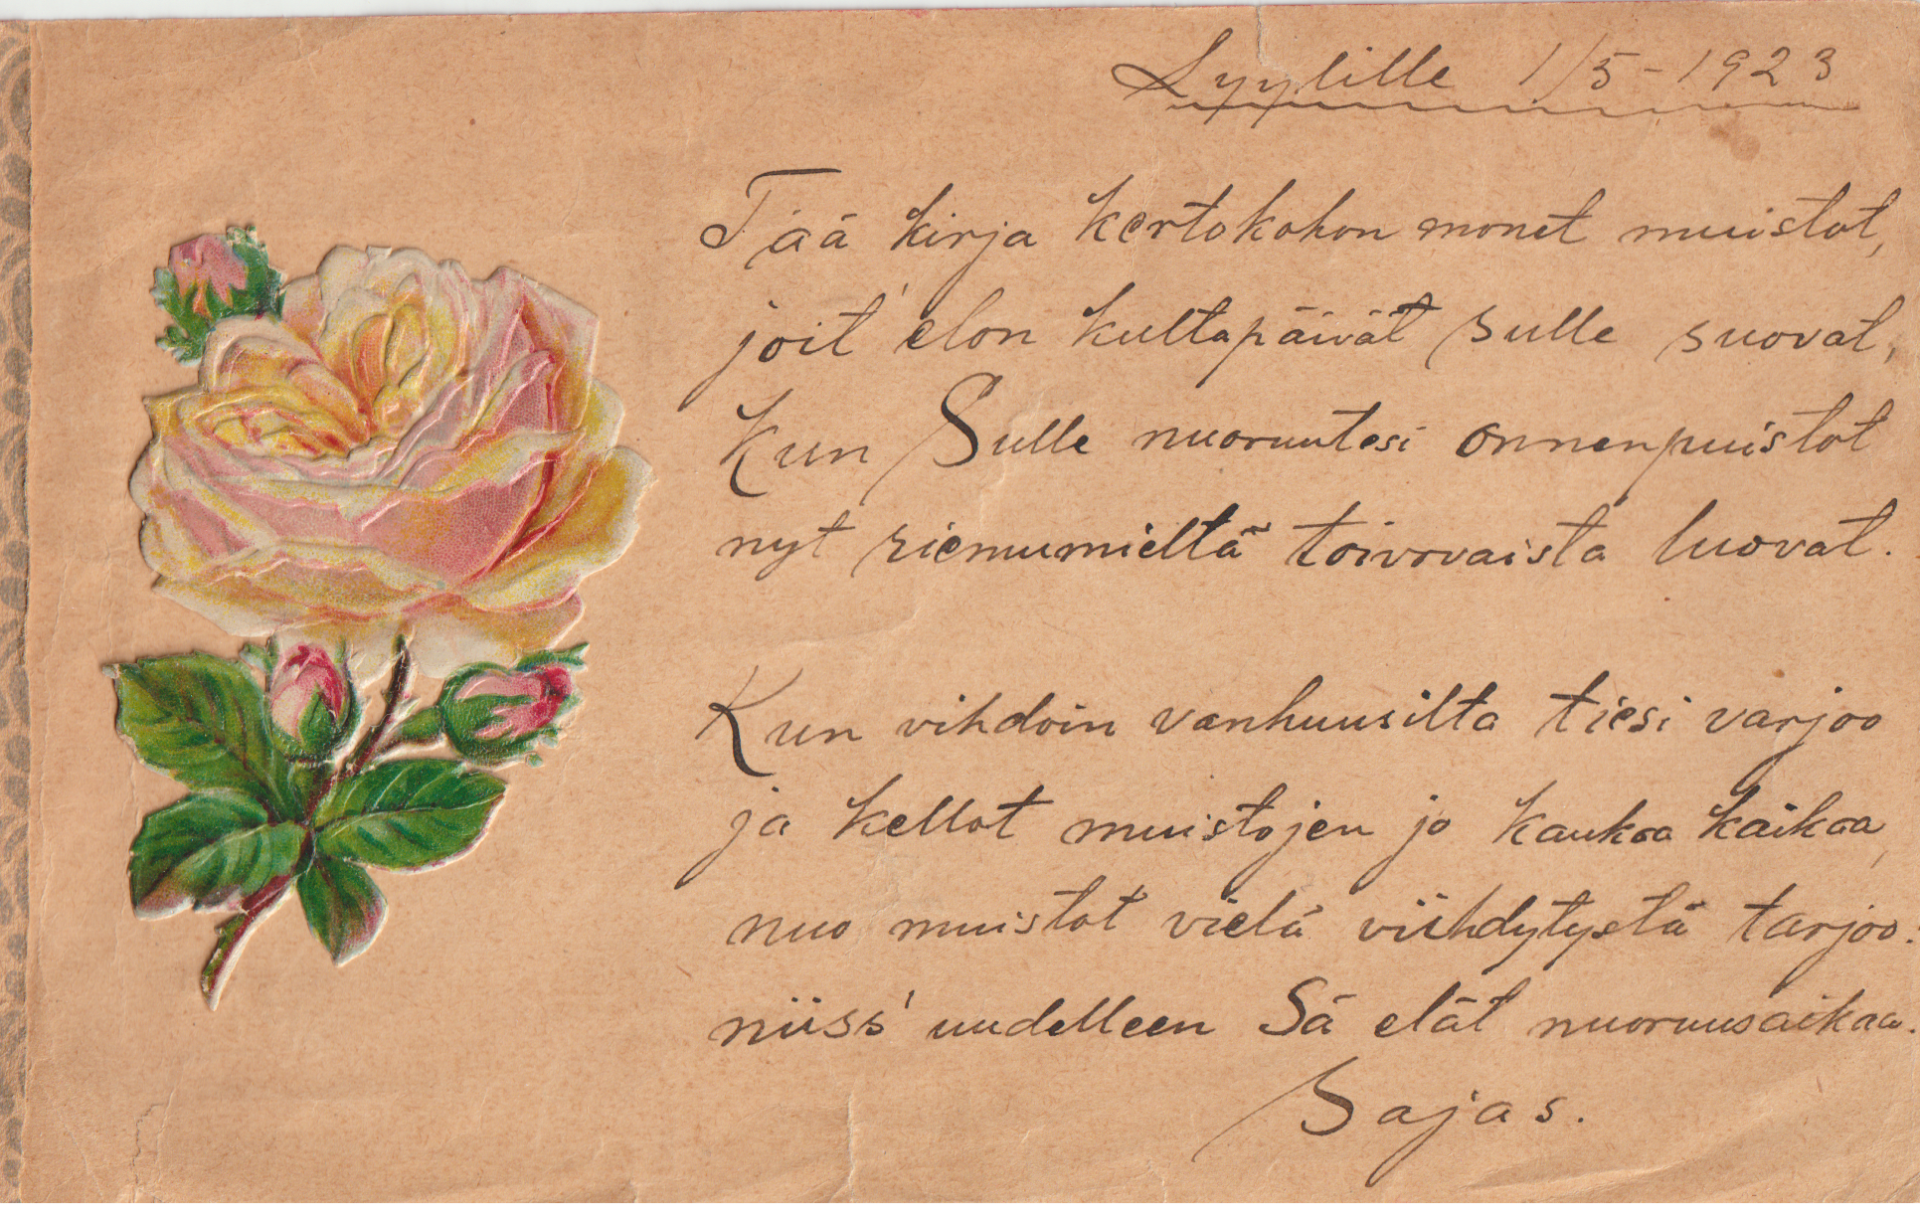 Lyylille 1/5-1923
Tää kirja kertokohon monet muistot,
joit' elon kultapäivät Sulle suovat,
Kun Sulle nuoruutesi onnenpuistot
nyt riemumieltä toivovaista luovat.
Kun vihdoin vanhuusilta tiesi varjoo
ja kellot muistojen jo kaukaa kaikaa,
nuo muistot vielä viihdytystä tarjoo:
niiss' uudelleen Sä elät nuoruusaikaa.
Sajas.